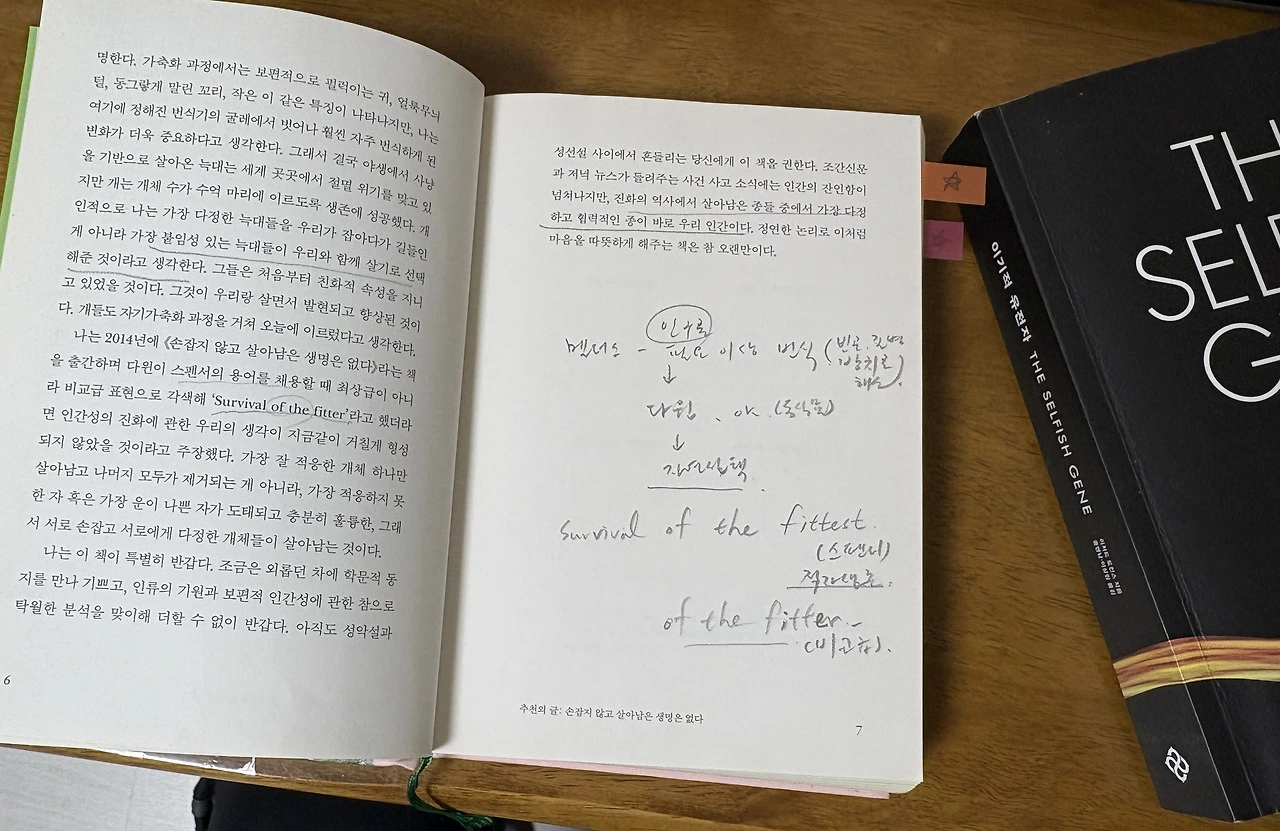 명한다. 가축화 과정에서는 보편적으로 펄럭이는 귀, 얼룩무늬
털, 동그랗게 말린 꼬리, 작은 이 같은 특징이 나타나지만, 나는
여기에 정해진 번식기의 굴레에서 벗어나 훨씬 자주 번식하게 된
변화가 더욱 중요하다고 생각한다. 그래서 결국 야생에서 사냥
을 기반으로 살아온 늑대는 세계 곳곳에서 절멸 위기를 맞고 있
지만 개는 개체 수가 수억 마리에 이르도록 생존에 성공했다. 개
인적으로 나는 가장 다정한 늑대들을 우리가 잡아다가 길들인
게 아니라 가장 붙임성 있는 늑대들이 우리와 함께 살기로 선택
해준 것이라고 생각한다. 그들은 처음부터 친화적 속성을 지니
고 있었을 것이다. 그것이 우리랑 살면서 발현되고 향상된 것이
다. 개들도 자기가축화 과정을 거쳐 오늘에 이르렀다고 생각한다.
나는 2014년에 《손잡지 않고 살아남은 생명은 없다》라는 책
을 출간하며 다윈이 스펜서의 용어를 채용할 때 최상급이 아니
라 비교급 표현으로 각색해 ‘Survival of the fitter’라고 했더라
면 인간성의 진화에 관한 우리의 생각이 지금같이 거칠게 형성
되지 않았을 것이라고 주장했다. 가장 잘 적응한 개체 하나만
살아남고 나머지 모두가 제거되는 게 아니라, 가장 적응하지 못
한 자 혹은 가장 운이 나쁜 자가 도태되고 충분히 훌륭한, 그래
서 서로 손잡고 서로에게 다정한 개체들이 살아남는 것이다.
나는 이 책이 특별히 반갑다. 조금은 외롭던 차에 학문적 동
지를 만나 기쁘고, 인류의 기원과 보편적 인간성에 관한 참으로
탁월한 분석을 맞이해 더할 수 없이 반갑다. 아직도 성악설과
6
성선설 사이에서 흔들리는 당신에게 이 책을 권한다. 조간신문
과 저녁 뉴스가 들려주는 사건 사고 소식에는 인간의 잔인함이
넘쳐나지만, 진화의 역사에서 살아남은 종들 중에서 가장 다정
하고 협력적인 종이 바로 우리 인간이다. 정연한 논리로 이처럼
마음을 따뜻하게 해주는 책은 참 오랜만이다.
인구론
멜더스 - 필요 이상 번식 (빈곤.
방치로
해소).
↓
다윈, OK. (동식물)
↓
자연선택.
Survival of the fittest.
(스펜서)
적자생존.
of the fitter.-
(비교급).
추천의 글: 손잡지 않고 살아남은 생명은 없다
7
이기적 유전자 THE SELFISH GENE
리처드 도킨스 지음
홍영남 이상임 옮김
TH
SEL
G